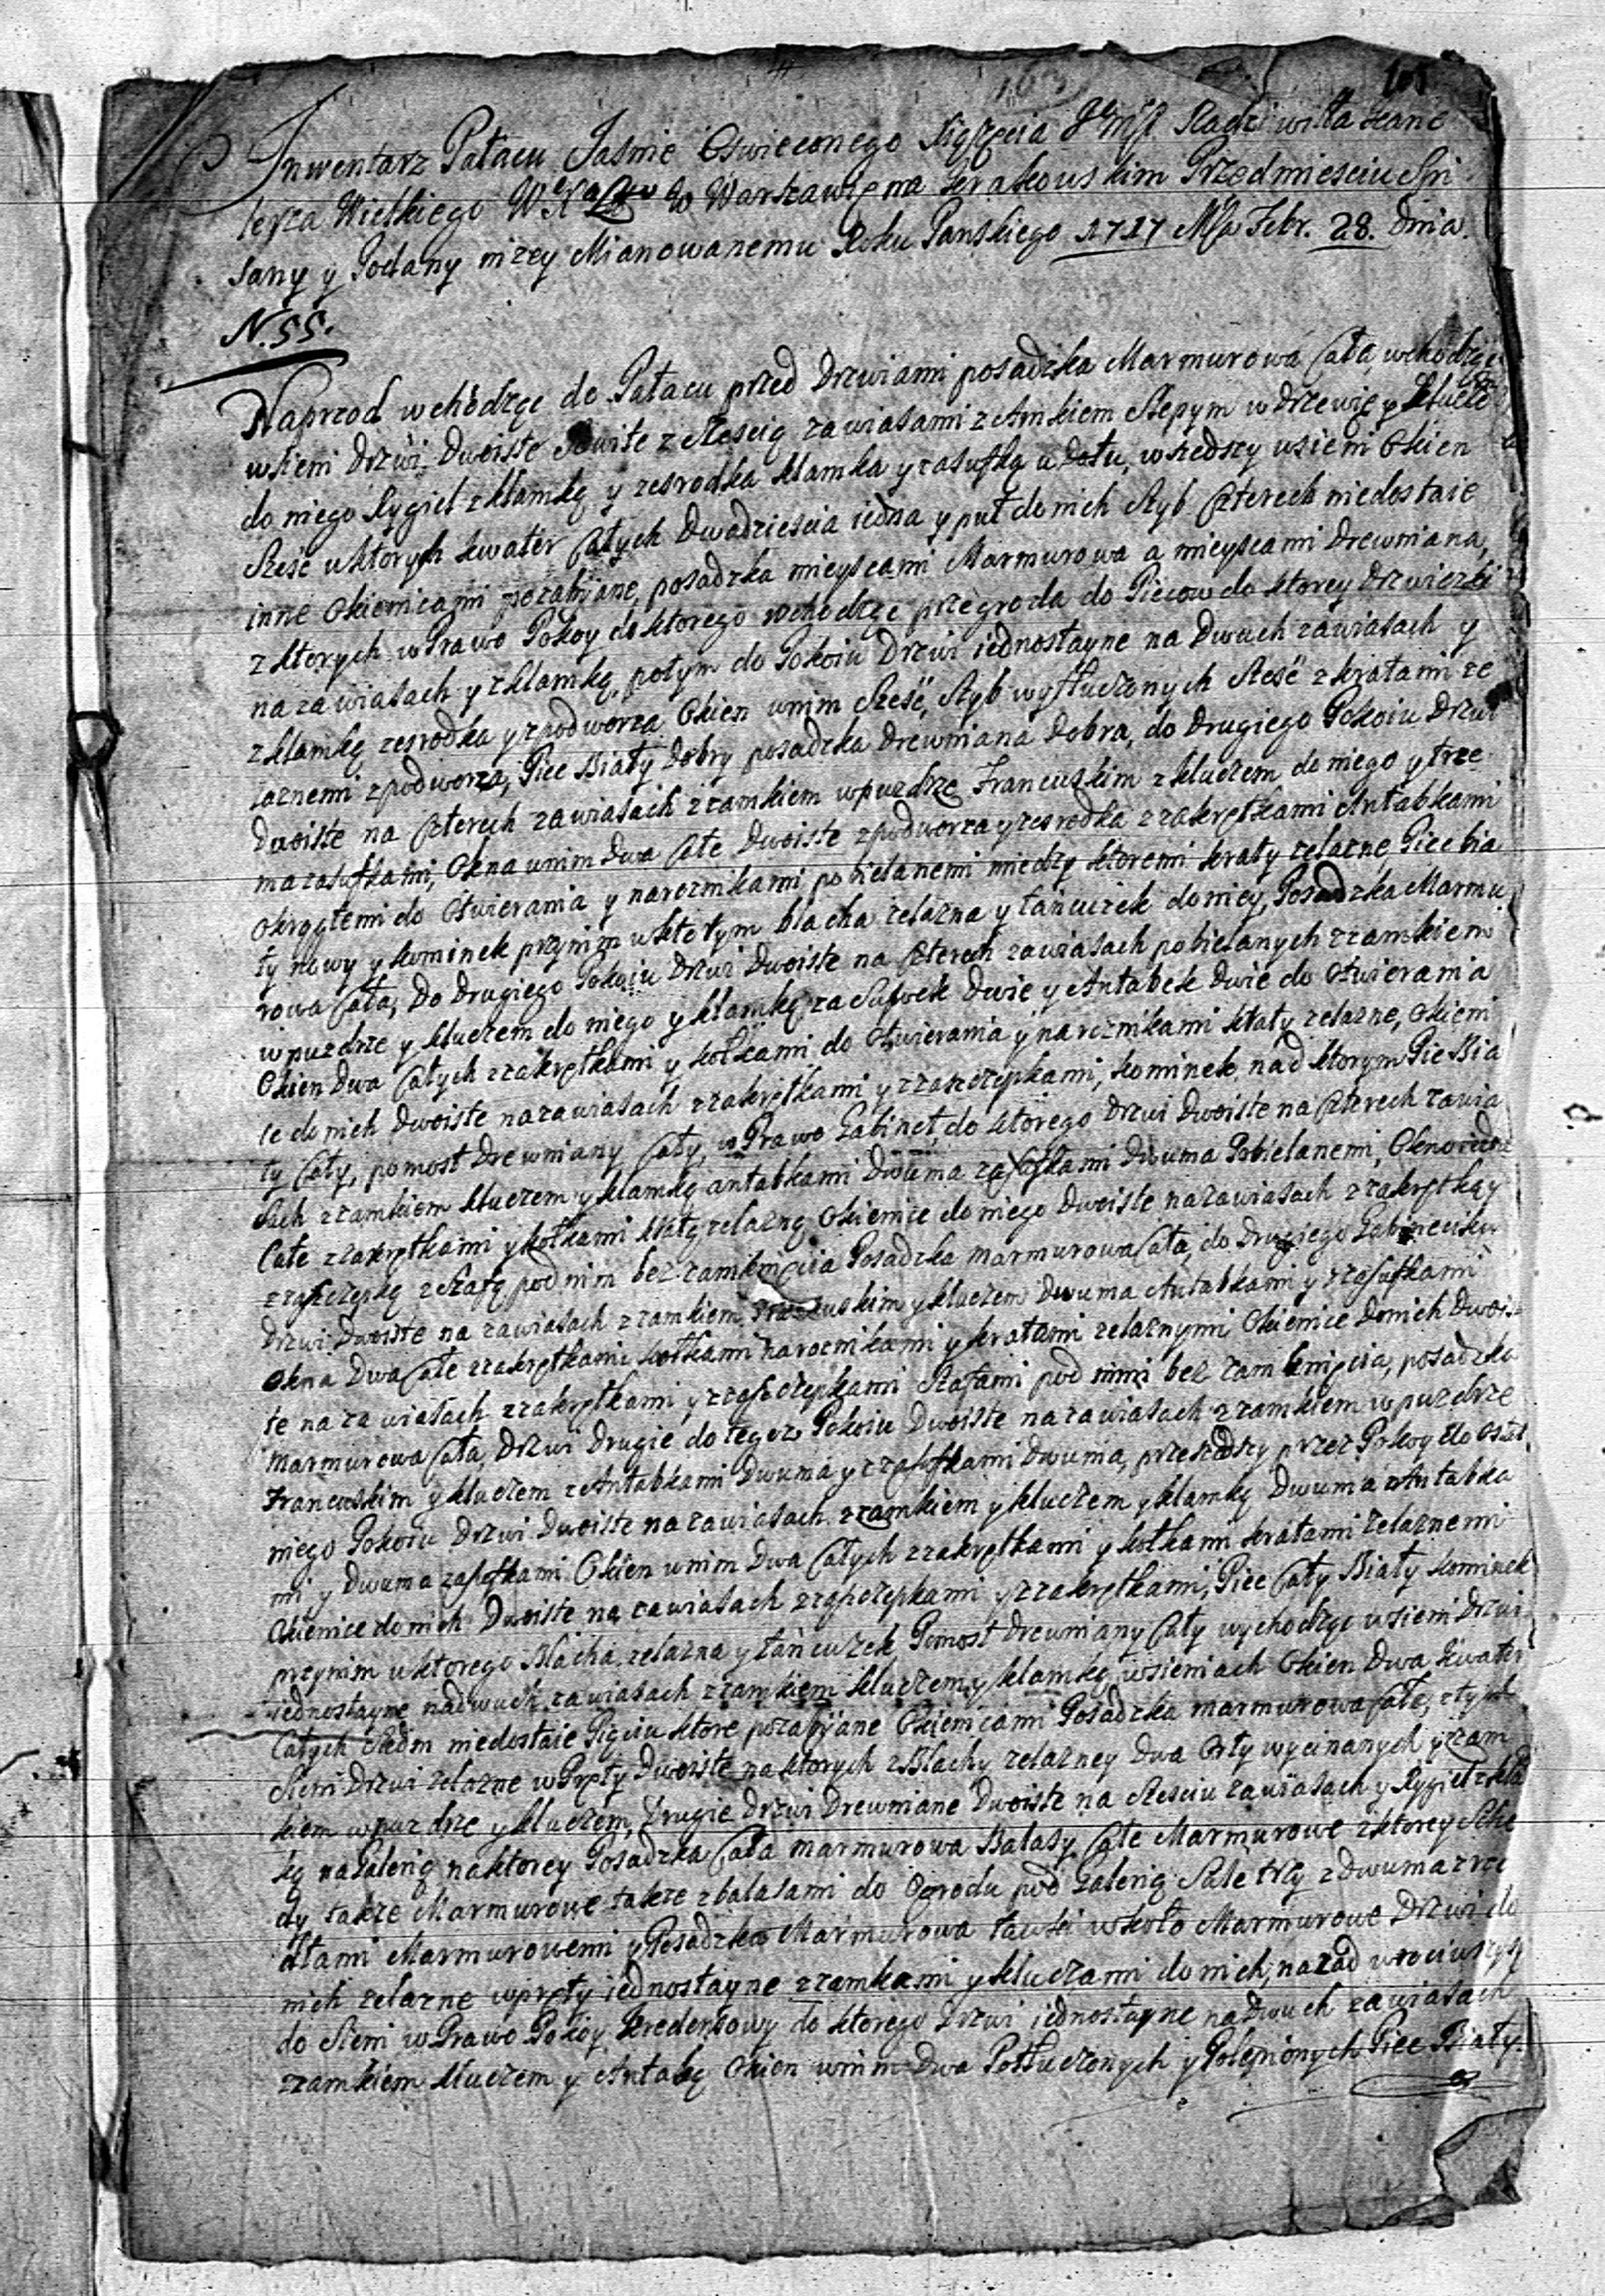 163
Inwentarz Pałacu Jasnie Oswieconego Xiązęcia Radziwiła Kanc
lerza Wielkiego w Warszawie na Krakowskim Przedmiesciu Spi
sany y Podany nizey Mianowanemu Roku Panskiego 1717 Msca Febr. 28. Dnia.
N. 55.
Naprzod wchodząc do Pałacu przed Drzwiami posadzka Marmurowa Cała, wchodząc
w sieni Drzwi Dwoiste z szescią zawiasami z Amkiem Slepym w Drzewie y Klucze
do niego Rygiel z klamką y zesrodka klamka y zasufką u dołu, wszedszy w sieni Okien
Szesc w ktorych kwater Całych Dwadziescia iedna y puł do nich Szyb Czterech niedostaie
inne Okienicami pozabijane, posadzka mieyscami Marmurowa a mieyscami Drewniana,
z ktorych w Prawo Pokoy do ktorego wchodząc przegroda do Piecow do ktorey Drzwiczki
na zawiasach y z klamką, potym do Pokoiu Drzwi iednostayne na Dwuch zawiasach y
z klamką zesrodka y z podworza Okien w nim Szesc, Szyb wytłuczonych Szesc z kratami ze
laznemi z podworza, Piec Biały Dobry posadzka Drewniana Dobra, do Drugiego Pokoiu Drzwi
Dwoiste na Czterech zawiasach z zamkiem w puzdrze Francuskim z kluczem do niego y trze
ma zasufkami, Okna w nim Dwa Całe Dwoiste z podworza y zesrodka z zakrętkami Antabkami
Okrągłemi do Otwierania y naroznikami pobielanemi między ktoremi kraty zelazne, Piec bia
ły nowy y kominek przy nim w ktorym blacha zelazna y łancuzek do niey, Posadzka Marmu
rowa Cała, Do Drugiego Pokoiu Drzwi Dwoiste na Czterech zawiasach pobielanych z zamkiem
w puzdrze y kluczem do niego y klamką, zasuwek Dwie y Antabek Dwie do Otwierania
Okien Dwa Całych z zakrętkami y kołkami do Otwierania y naroznikami kraty zelazne, Okieni
ce do nich Dwoiste na zawiasach z zakrętkami y z zaszczepkami, kominek, nad ktorym Pie Bia
ły Cały, pomost Drewniany Cały, w Prawo Gabinet, do ktorego Drzwi Dwoiste na Czterech zawia
sach z zamkiem kluczem y klamką antabkami Dwuma zasufkami Dwuma Pobielanemi, Okno iedne
Całe z zakrętkami y kołkami kratą zelazną Okienice do niego Dwoiste na zawiasach z zakrętką y
zaszczepką z szafą pod nim bez zamknięcia Posadzka marmurowa Cała, do Drugiego Gabineciku
Drzwi Dwoiste na zawiasach z zamkiem Francuskim y kluczem Dwuma Antabkami y zasufkami
Okna Dwa Całe z zakrętkami kołkami naroznikami y kratami zelaznymi Okienice do nich Dwois
te na zawiasach z zakrętkami y z zaszczepkami Szafami pod nimi bez zamknięcia, posadzka
Marmurowa Cała, Drzwi Drugie do tegoz Pokoiu Dwoiste na zawiasach z zamkiem w puzdrze
Francuskim y kluczem z Antabkami Dwuma y zasufkami Dwuma, przeszedszy przez Pokoy do Ostat
niego Pokoiu Drzwi Dwoiste na zawiasach z zamkiem y kluczem y klamką Dwuma Antabka
mi y Dwuma zasufkami Okien w nim Dwa Całych z zakrętkami y kołkami kratami zelaznemi
Okienice do nich Dwoiste na zawiasach z zaszczepkami y z zakrętkami, Piec Cały Biały kominek
przy nim u ktorego Blacha zelazna y łancuzek Pomost Drewniany Cały wychodząc w sieni Drzwi
iednostayne na Dwuch zawiasach z zamkiem kluczem y klamką, w sieniach Okien Dwa kwater
Całych Siedm niedostaie Pięciu ktore pozabijane Okienicami Posadzka marmurowa Cała, z tych
Sieni Drzwi zelazne w Pręty Dwoiste na ktorych z Blachy zelazney Dwa Orły wycinanych y zam
kiem w puzdrze y kluczem, Drugie Drzwi Drewniane Dwoiste na Szesciu zawiasach y Rygiel z kla
ką na Galerią na ktorey Posadzka Cała marmurowa Balasy Całe Marmurowe z ktorey Scho
dy takze Marmurowe takze z balasami do Ogrodu pod Galerią Sale trzy z Dwuma zrzo
dłami Marmurowemi y Posadzka Marmurowa ławki w koło Marmurowe Drzwi do
nich zelazne w pręty iednostayne z zamkami y kluczami do nich, nazad wrociwszy się
do Sieni w Prawo Pokoy kredensowy do ktorego Drzwi iednostayne na Dwuch zawiasach
z zamkiem kluczem y Antabą Okien w nim Dwa Potłuczonych y Polepionych Piec Biały.